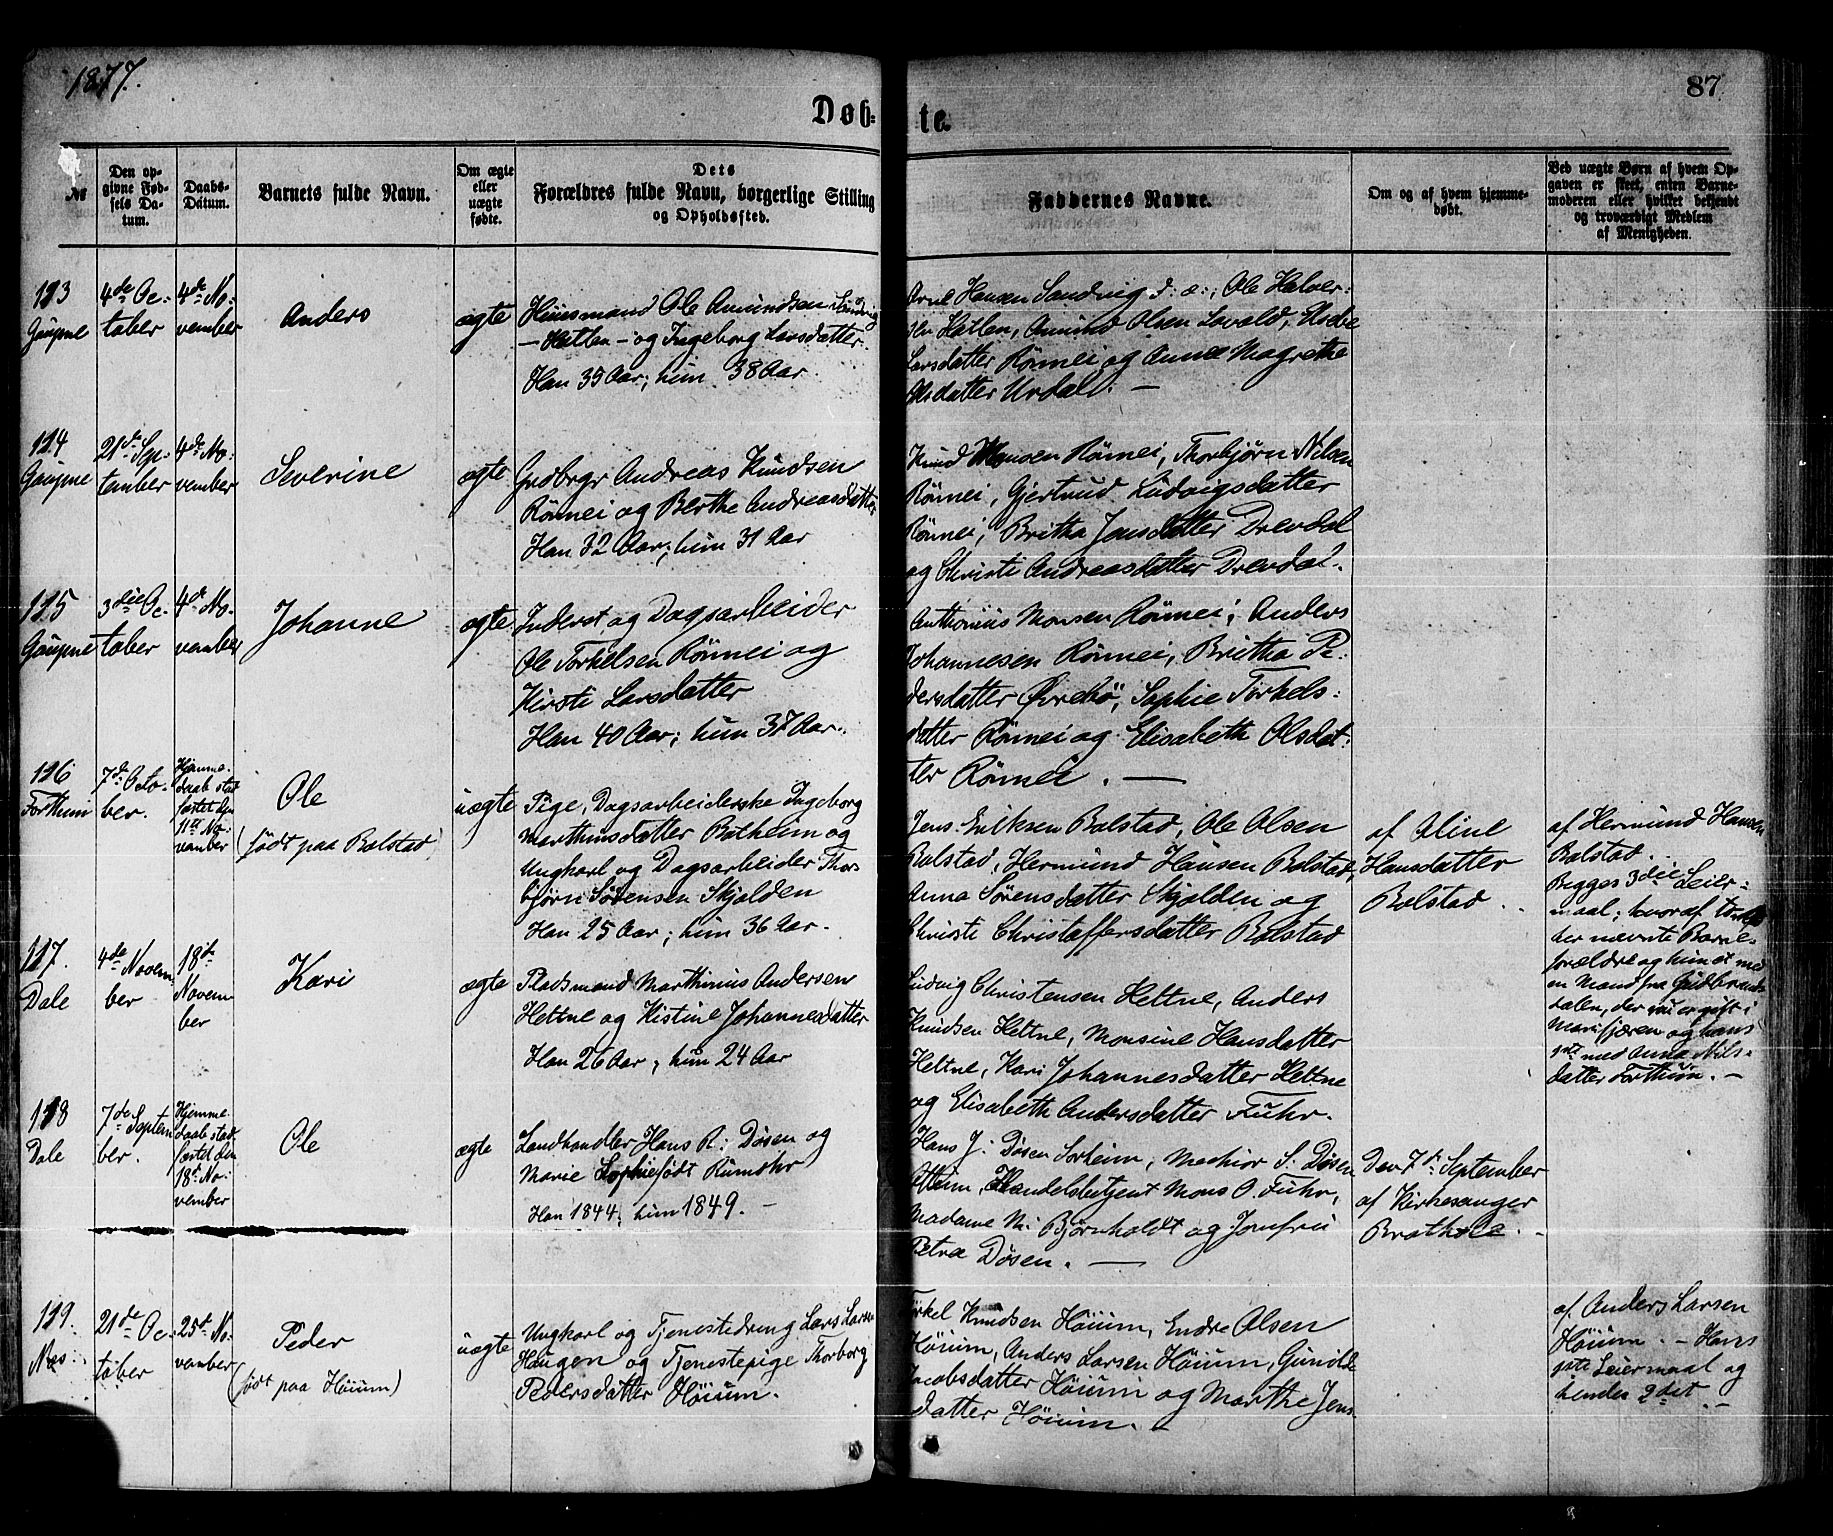 1877.
87
Døb-
te
№
Den op-
givne Fød-
sels Da-
tum.
Daabs-
Datum.
Barnets fulde Navn.
Om ægte
eller
uægte
fødte.
Dets
Forældres fulde Navn, borgerlige Stilling
og Opholdssted.
Faddernes Navne.
Om og af hvem hjemme-
døbt.
Ved uægte Børn af hvem Op-
gaven er skeet, enten Barne-
moderen eller hvilket bekjendt
og troværdigt Medlem
af Menigheden.
113
Gaupne
4de Oc-
tober
4de No-
vember
Anders
ægte
Huusmand Ole Amundsen Sandvig
- Hatlen - og Ingeborg Larsdatter.
Han 35 Aar; hun 38 Aar.
Arne Hansen Sandvig d: æ:, Ole Halver-
sen Hatlen, Amund Olsen Lovald,
Larsdatter Rönnei og Anne Magrethe
Olsdatter Urdal. -
114
Gaupne
21de Sep-
tember
4de No-
vember
Severine
ægte
Grdbrgr Andreas Knudsen
Rönnei og Berthe Andreasdatter
Han 32 Aar; hun 31 Aar
Knud Monsen Rönnei, Thorbjørn Nilsen
Rönnei, Gjertrud Ludvigsdatter
Rönnei, Britha Jonsdatter Drevdal
og Christi Andreasdatter Drevdal.
115
Gaupne
3die Oc-
tober
4de No-
vember
Johanne
ægte
Inderst og Dagsarbeider
Ole Torkelsen Rönnei og
Kirsti Larsdatter
Han 40 Aar; hun 37 Aar.
Anthonius Monsen Rönnei, Anders
Johannesen Rönnei, Britha Pe-
dersdatter Øvrebö, Sophie Torkels-
datter Rönnei og Elisabeth Olsdat-
ter Rönnei. -
116
Forthun
7de Octo-
ber.
Hjemme-
daab stad-
fæstet den
11te No-
vember
Ole
(født paa Bolstad)
uægte
Pige, Dagsarbeiderske Ingeborg
Marthinsdatter Bolheim og
Ungkarl og Dagsarbeider Thor-
bjørn Sørensen Skjolden
Han 25 Aar; hun 36 Aar.
Jens Eriksen Bolstad, Ole Olsen
Bolstad, Hermund Hansen Bolstad,
Anna Sørensdatter Skjolden og
Christi Christaffersdatter Bolstad
af Oline
Hansdatter
Bolstad.
af Hermund Hansen
Bolstad.
Begges 3die Leier-
maal; hvoraf
der nævnte Barne-
forældre og hun et med
en Mand fra Gudbrands-
dalen, der nu er gift i
Marifjæren og hans
1ste med Anna Nils-
datter Forthun. -
117.
Dale
4de Novem-
ber
18de
Novem-
ber
Kari
ægte
Pladsmand Marthinus Andersen
Heltne og Kistine Johannesdatter
Han 26 Aar; hun 24 Aar
Ludvig Christensen Heltne, Anders
Knudsen Heltne, Monsine Hansdatter
Heltne, Kari Johannesdatter Heltne
og Elisabeth Andersdatter Fuhr.
118
Dale
7de Septem-
ber.
Hjemme-
daab stad-
fæstet den
18de No-
vember
Ole
ægte
Landhandler Hans R: Døsen og
Marie Sophie født Rumohr
Han 1844; hun 1849. -
Hans J. Døsen Sorheim, Mechior S. Døsen
Handelsbetjent Mons O. Fuhr,
Madame M: Bjørnholdt og Jomfru
Petra Døsen. -
Den 7de September
af Kirkesanger
Bratholè.
119.
Næs.
21de Oc-
tober
25de No-
vember
Peder
(født paa Høium)
uægte
Ungkarl og Tjenestedreng Lars Larsen
Haugen og Tjenestepige Thorborg
Pedersdatter Høium.
Torkel Knudsen Høium, Endre Olsen
Høium, Anders Larsen Høium, Gunilde
Jacobsdatter Høium og Marthe Jens-
datter Høium.
af Anders Larsen
Høium. - Hans
1ste Leiermaal og
hendes 2det. -